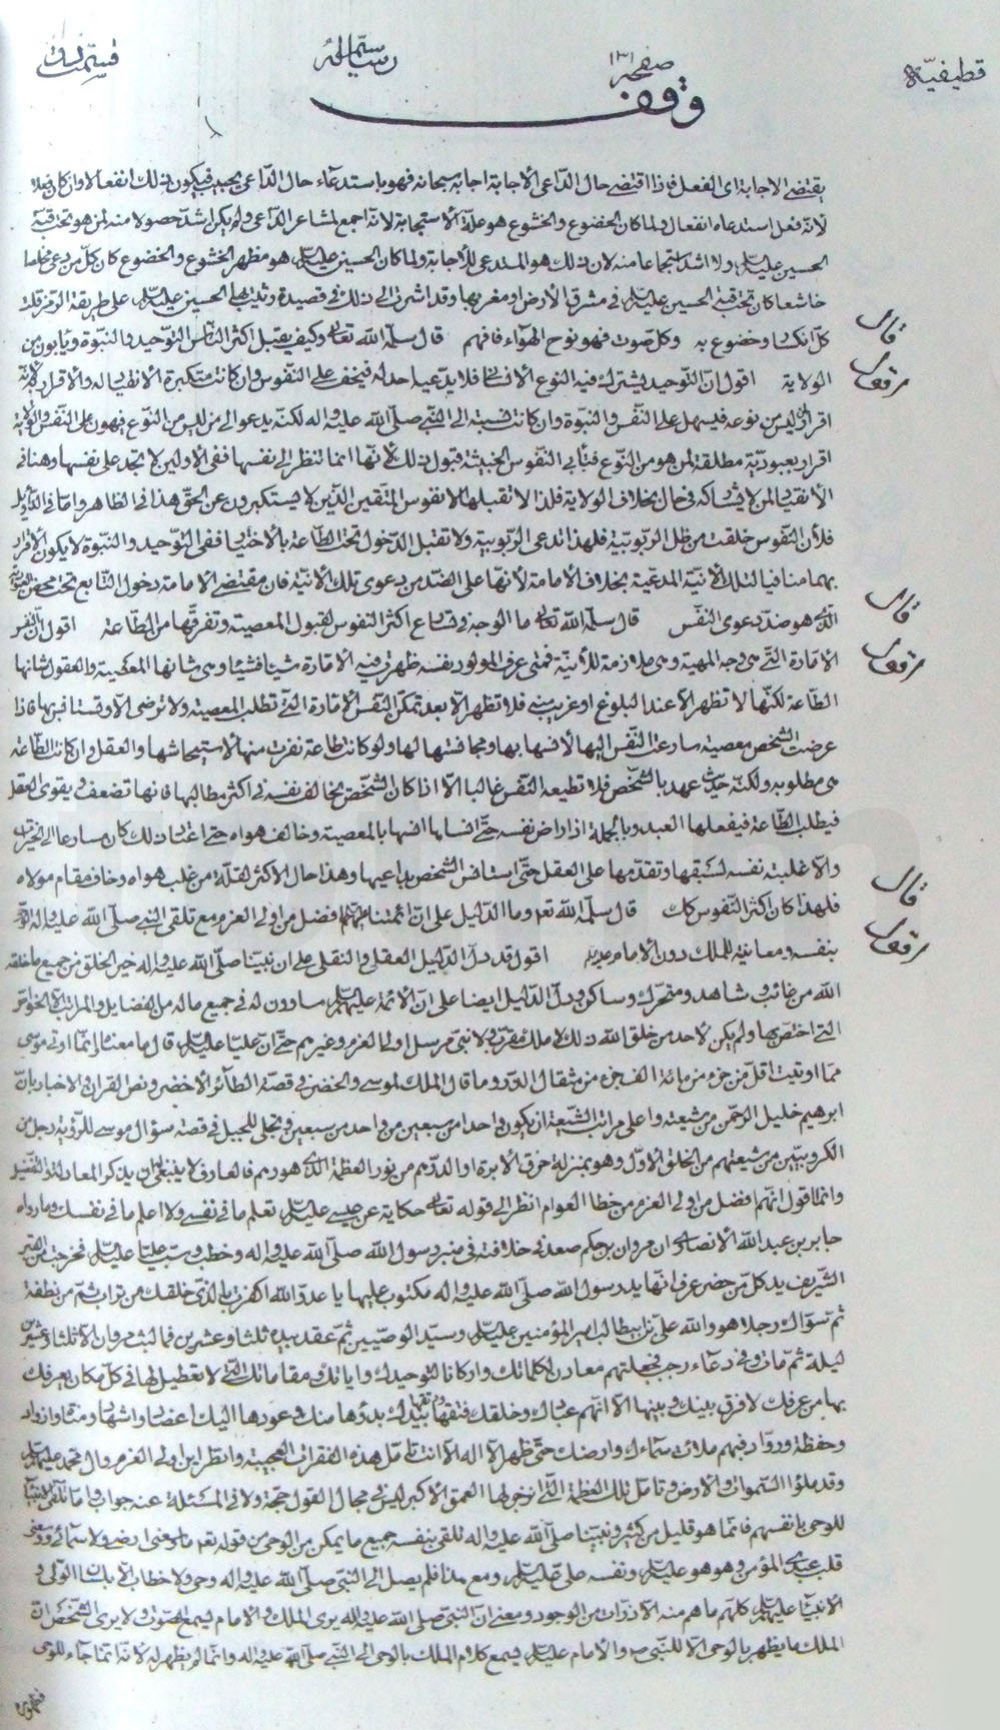 قطيفيّة صفحة ١٣١ رسالة قسمت
وقف
يقتضى الاجابة اى الفعل فاذا اقتضى حال الدّاعى الاجابة اجابه سبحانه فهو باستدعاء حال الدّاعى يجيب فيكون ذلك انفعالا وان كان فعلا
لانّه فعل استدعاه انفعال ولما كان الخضوع والخشوع هو علّة الاستجابة لانّه اجمع لمشاعر الدّاعى ولم يكن اشدّ حصولا منه لمن هو تحت قبّة
الحسين عليه السلام ولا اشد استجماعا منه لان ذلك هو المستدعى للأجابة ولما كان الحسين عليه السلام هو مظهر الخشوع والخضوع كان كلّ من دعى خاضعا
خاشعا كان تحت قبّة الحسين عليه السلام فى مشرق الأرض او مغربها وقد اشرت الى ذلك فى قصيدة رثيت بها الحسين عليه السلام على طريقة الرمز قلت
كلّ انكسار وخضوع به وكل صوت فهو نوح الهوآء فافهم قال سلّمه اللّه تعالى وكيف يقبل اكثر النّاس التّوحيد والنّبوّة ويأبون من
الولاية اقول انّ التّوحيد يشترك فيه النوع الانسانى فلا يدّعيه احد له فيخف على النّفوس وان كانت متكبرة الانقياد له والأقرار به لانّه
اقرار لمن ليس من نوعه فيسهل على النّفس والنبوّة وان كانت نسبة الى النّبى صلّى اللّه عليه واله لكنّه يدعوا الى من ليس من النّوع فيهون على النّفس والولاية
اقرار بعبوديّة مطلقة لمن هو من النّوع فتأبى النّفوس الخبيثة قبول ذلك لأنّها انما تنظر الى نفسها ففى الأولين لا تجد على نفسها وهنا فى
الأنقياد لمن لا يشاكه فى حال بخلاف الولاية فلذا لا تقبلها الا نفوس المتّقين الّذين لا يستكبرون عن الحقّ هذا فى الظاهر وامّا فى التأويل
فلأن النّفوس خلقت من ظل الرّبوبيّة فلهذا تدعى الرّبوبيّة ولا تقبل الدّخول تحت الطّاعة بالأختيار ففى التّوحيد والنّبوّة لا يكون الأقرار
بهما منافيا لتلك الأنيّة المدعية بخلاف الأمامة لأنّها على الضّد من دعوى تلك الأنيّة فان مقتضى الأمامة دخول التّابع تحت محض العبوديّة
الّذى هو ضدّ دعوى النّفس قال سلّمه اللّه تعالى ما الوجه فى تسارع اكثر النّفوس لقبول المعصية وتفرّقها من الطّاعة اقول انّ النّفس
الأمّارة الّتى هى وجه المهيّة وهى ملازمة للأنيّة فمتى عرف المولود نفسه ظهرت فيه الأمّارة شيئا فشيئا وهى شأنها المعصية والعقول شأنها
الطّاعة لكنّها لا تظهر الاّ عند البلوغ او غريب منه فلا تظهر الاّ بعد تمكّن النّفس الأمّارة الّتى تطلب المعصية ولا ترضى الاّ وقت فاذا
عرضت للشّخص معصية سارعت النّفس اليها لأنسها بها ومجانستها لها ولو كانت طاعة نفرت منها لاستيحاشها والعقل وان كانت الطّاعة
هى مطلوبه ولكنّه حديث عهد بالشّخص فلا تطيعه النّفس غالبا الاّ اذا كان الشّخص يخالف نفسه فى اكثر مطالبها فانها تضعف ويقوى العقل
فيطلب الطّاعة فيفعلها العبد وبالجملة اذا راض نفسه حتّى انساها انسها بالمعصية وخالف هواه حتّى اعتاد ذلك كان مسارعا الى الخيرات
والاّ غلبته نفسه لسبقها وتقدّمها على العقل حتّى استانس الشّخص بدواعيها وهذا حال الاكثر لقلّة من غلب هواه وخاف مقام مولاه
فلهذا كان اكثر النّفوس كذلك قال سلّمه اللّه تعالى وما الدّليل على انّ ائمّتنا افضل من اولى العزم مع تلقى النّبى صلّى اللّه عليه واله
بنفسه ومعاينة للملك دون الأمام اقول قد دلّ الدّليل العقلى والنقلى على ان نبيّنا صلّى اللّه عليه واله خير الخلق من جميع ما خلق
اللّه من غائب وشاهد ومتحرّك وساكن ودلّ الدّليل ايضا على انّ الأئمّة عليهم السلام مساوون له فى جميع ما له من الفضايل والمراتب الاّ الخواصّ
الّتى اختصّ بها ولم يكن لأحد من خلق اللّه ذلك لا ملك مقرّب ولا نبىّ مرسل اولى العزم وغيرهم حتّى انّ عليّا عليه السلام قال ما معناه انّما اوتى موسى
ممّا اوتيت اقلّ من جزء من مائة الف جزء من مثقال الذّر وما قال الملك لموسى والخضر فى قصّة الطّائر الأخضر ونصّ القران والاخبار بانّ
ابرهيم خليل الرّحمن من شيعته واعلى مراتب الشّيعة ان يكون واحدا من سبعين من واحد من سبعين وتجلى للجبل فى قصّة سؤال موسى للرّؤية رجل من
الكروبيّين من شيعتهم من الخلق الأوّل وهو بمنزلة خرق الأبرة او الدّرهم من نور العظمة الّذى هو درهم فالعارف لا ينبغى ان يذكر المعادلة والتّفضيل
وانّما قول انّهم افضل من اولى العزم من خطا العوام انظر الى قوله تعالى حكاية عن عيسى عليه السلام تعلم ما فى نفسى ولا اعلم ما فى نفسك وما رواه
جابر بن عبد اللّه الأنصارى ان مروان بن حكم صعد فى خلافته فى منبر رسول اللّه صلّى اللّه عليه واله وخطب وسبّ عليّا عليه السلام فخرجت من القبر
الشّريف يد كلّ من حضر عرف انّها يد رسول اللّه صلّى اللّه عليه واله مكتوب عليها يا عدوّ اللّه اكفرت بالّذى خلقك من تراب ثمّ من نطفة
ثم سوّاك رجلا هو واللّه علىّ بن ابيطالب امير المؤمنين عليه السلام وسيّد الوصيّين ثمّ عقد بيده ثلثا وعشرين فما لبث مروان الاّ ثلثا وعشرين
ليلة ثمّ مات وفى دعاء رجب فجعلتهم معادن لكلماتك واركانا لتوحيدك واياتك ومقاماتك الّتى لا تعطيل لها فى كلّ مكان يعرفك
بها من عرفك لا فرق بينك وبينها الاّ انّهم عبادك وخلقك فتقها ورتقها بيدك بدؤها منك وعودها اليك اعضاد واشهاد ومناة وازواد
وحفظة ورواد فبهم ملأت سماءك وارضك حتّى ظهر الاّ اله الاّ انت تأمّل هذه الفقرات العجيبة وانظر اين اولى العزم وال محمد عليهم السلام
وقد ملؤا السّموات والأرض وتأمّل تلك العظمة الّتى انزجر لها العمق الأكبر ليس فى مجال القول حجة ولا فى المسئلة عنه جواب وامّا تلقى الأنبياء
للوحى بانفسهم فانّما هو قليل من كثير ونبيّنا صلّى اللّه عليه واله تلقى بنفسه جميع ما يمكن من الوحى من قوله تعالى ما وسعنى ارضى ولا سمائى ووسعنى
قلب عبدى المؤمن وهو هو عليه السلام ونفسه علىّ عليه السلام ومع هذا فلم يصل الى النّبى صلّى اللّه عليه واله وحى ولا خطاب الاّ بلسان الولى و
الأنبياء عليهم السلام كلّهم ما هم منه الاّ ذرّات من الوجود ومعنى انّ النّبى صلّى اللّه عليه واله يرى الملك والأمام يسمع الصّوت ولا يرى الشّخص انّ
الملك ما يظهر بالوحى الاّ للنّبى ص والأمام عليه السلام يسمع كلام الملك بالوحى الى النّبى صلّى اللّه عليه واله وانّما لم يظهر له لانّه انّما جاء للوحى
قال
قال
قال